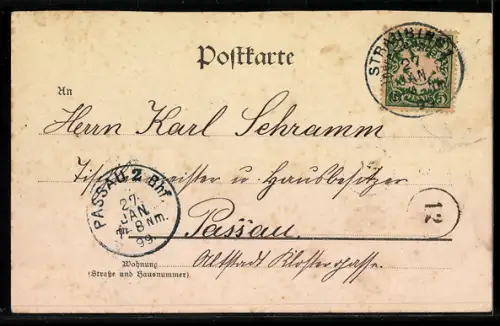 Postkarte
STRAUBING
27
JAN.
5 5
An
Herrn Karl Schramm
Tischlermeister u Hausbesitzer
PASSAU 2 Bhf
27.
JAN.
7-8 Nm.
99.
12
Passau.
Altstadt Klostergasse.
Wohnung
(Straße und Hausnummer).